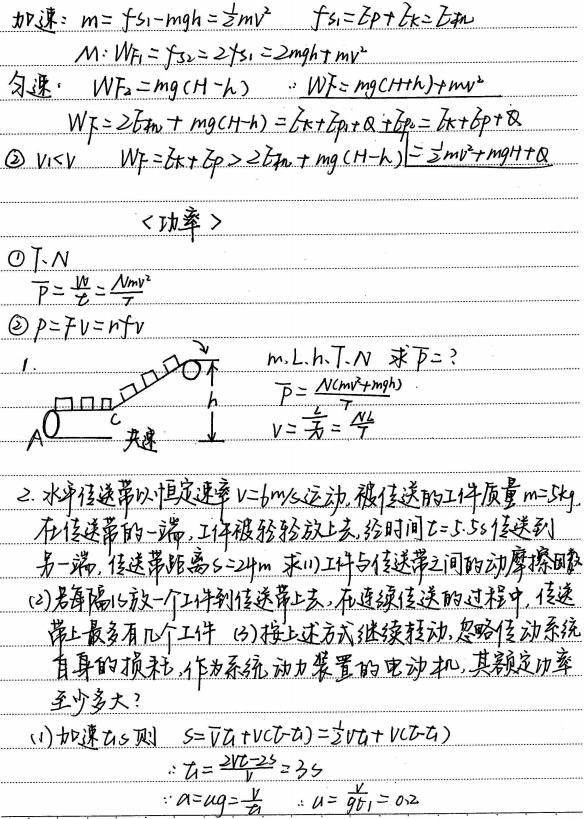 加速: m = fs₁-mgh=½mv² fs₁=Ep+Ek=E机
M: WF₁=fs₂=2fs₁=2mgh+mv²
匀速: WF₂=mg(H-h) ∴ WF=mg(H+h)+mv²
WF=2E机+mg(H-h)=Ek+Ep₁+Q+Ep₂=Ek+Ep+Q
② V₁<V WF=Ek+Ep>2E机+mg(H-h)=½mv²+mgH+Q
<功率>
① T、N
P̄=W/t=Nmv²/T
② P=FV=nfv
1. m、L、h、T、N 求P̄=?
P̄=N(mv²+mgh)/T
V=L/(T/N)=NL/T
h
A C 共速
2. 水平传送带以恒定速率V=6m/s运动,被传送的工件质量m=5kg,
在传送带的一端,工件被轻轻放上去,经时间t=5.5s传送到
另一端,传送带距离s=24m 求(1)工件与传送带之间的动摩擦因数
(2)若每隔1s放一个工件到传送带上去,在连续传送的过程中,传送
带上最多有几个工件 (3)按上述方式继续转动,忽略传动系统
自身的损耗,作为系统动力装置的电动机,其额定功率
至少多大?
(1)加速t₁s则 S=V̄t₁+V(t-t₁)=½Vt₁+V(t-t₁)
∴ t₁=(2Vt-2S)/V=3s
∵ a=ug=V/t₁ ∴ u=V/gt₁=0.2